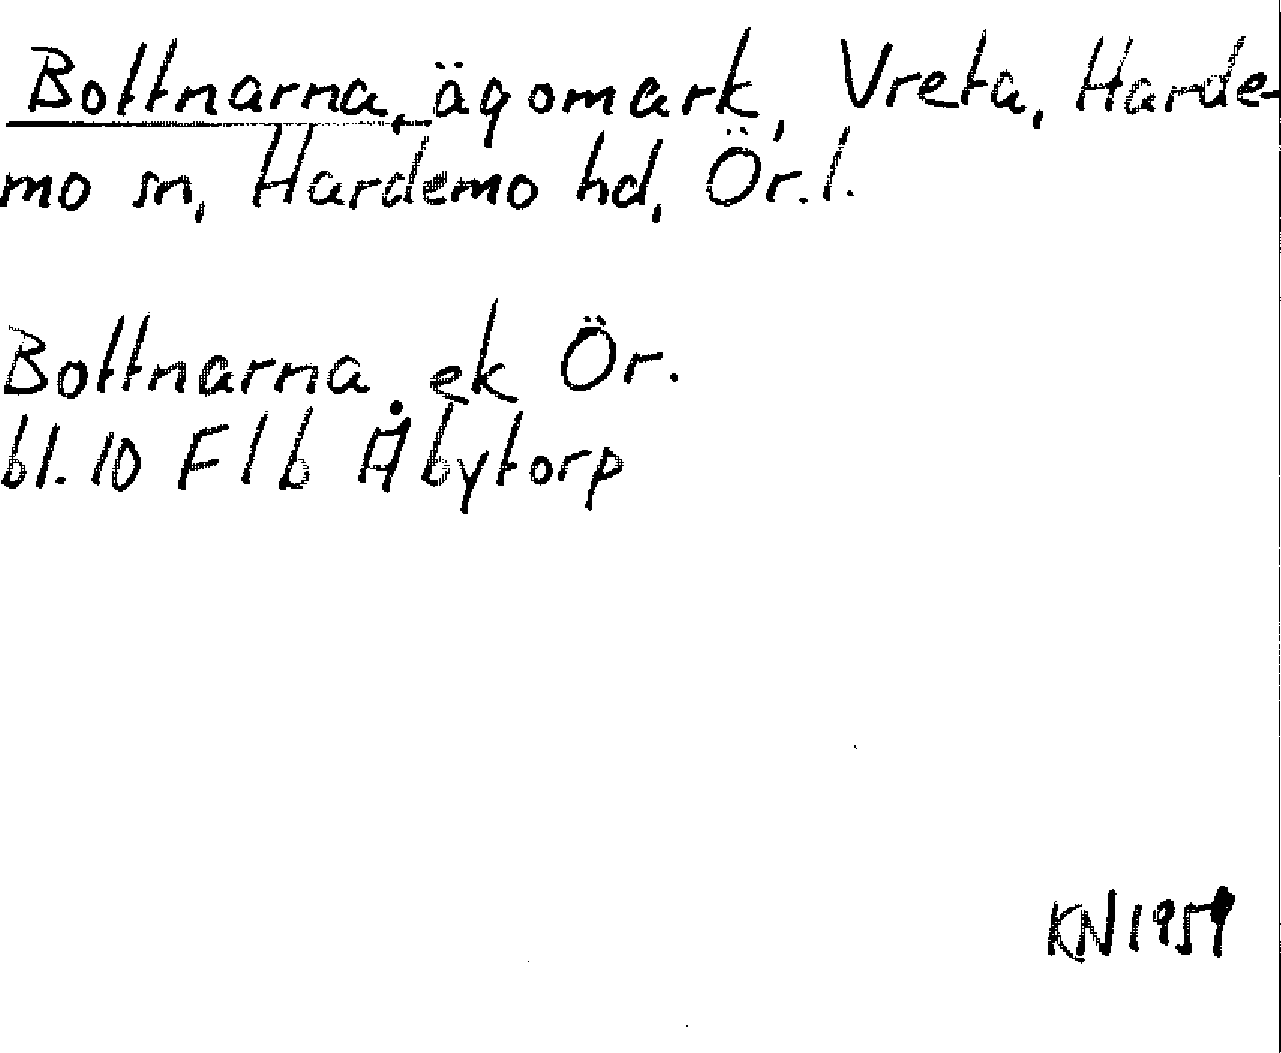 Bottnarna, ägomark, Vreta, Harde-
mo sn, Hardemo hd, Ör.l.
Bottnarna ek Ör.
bl. 10 F 1 b Åbytorp
KN 1959